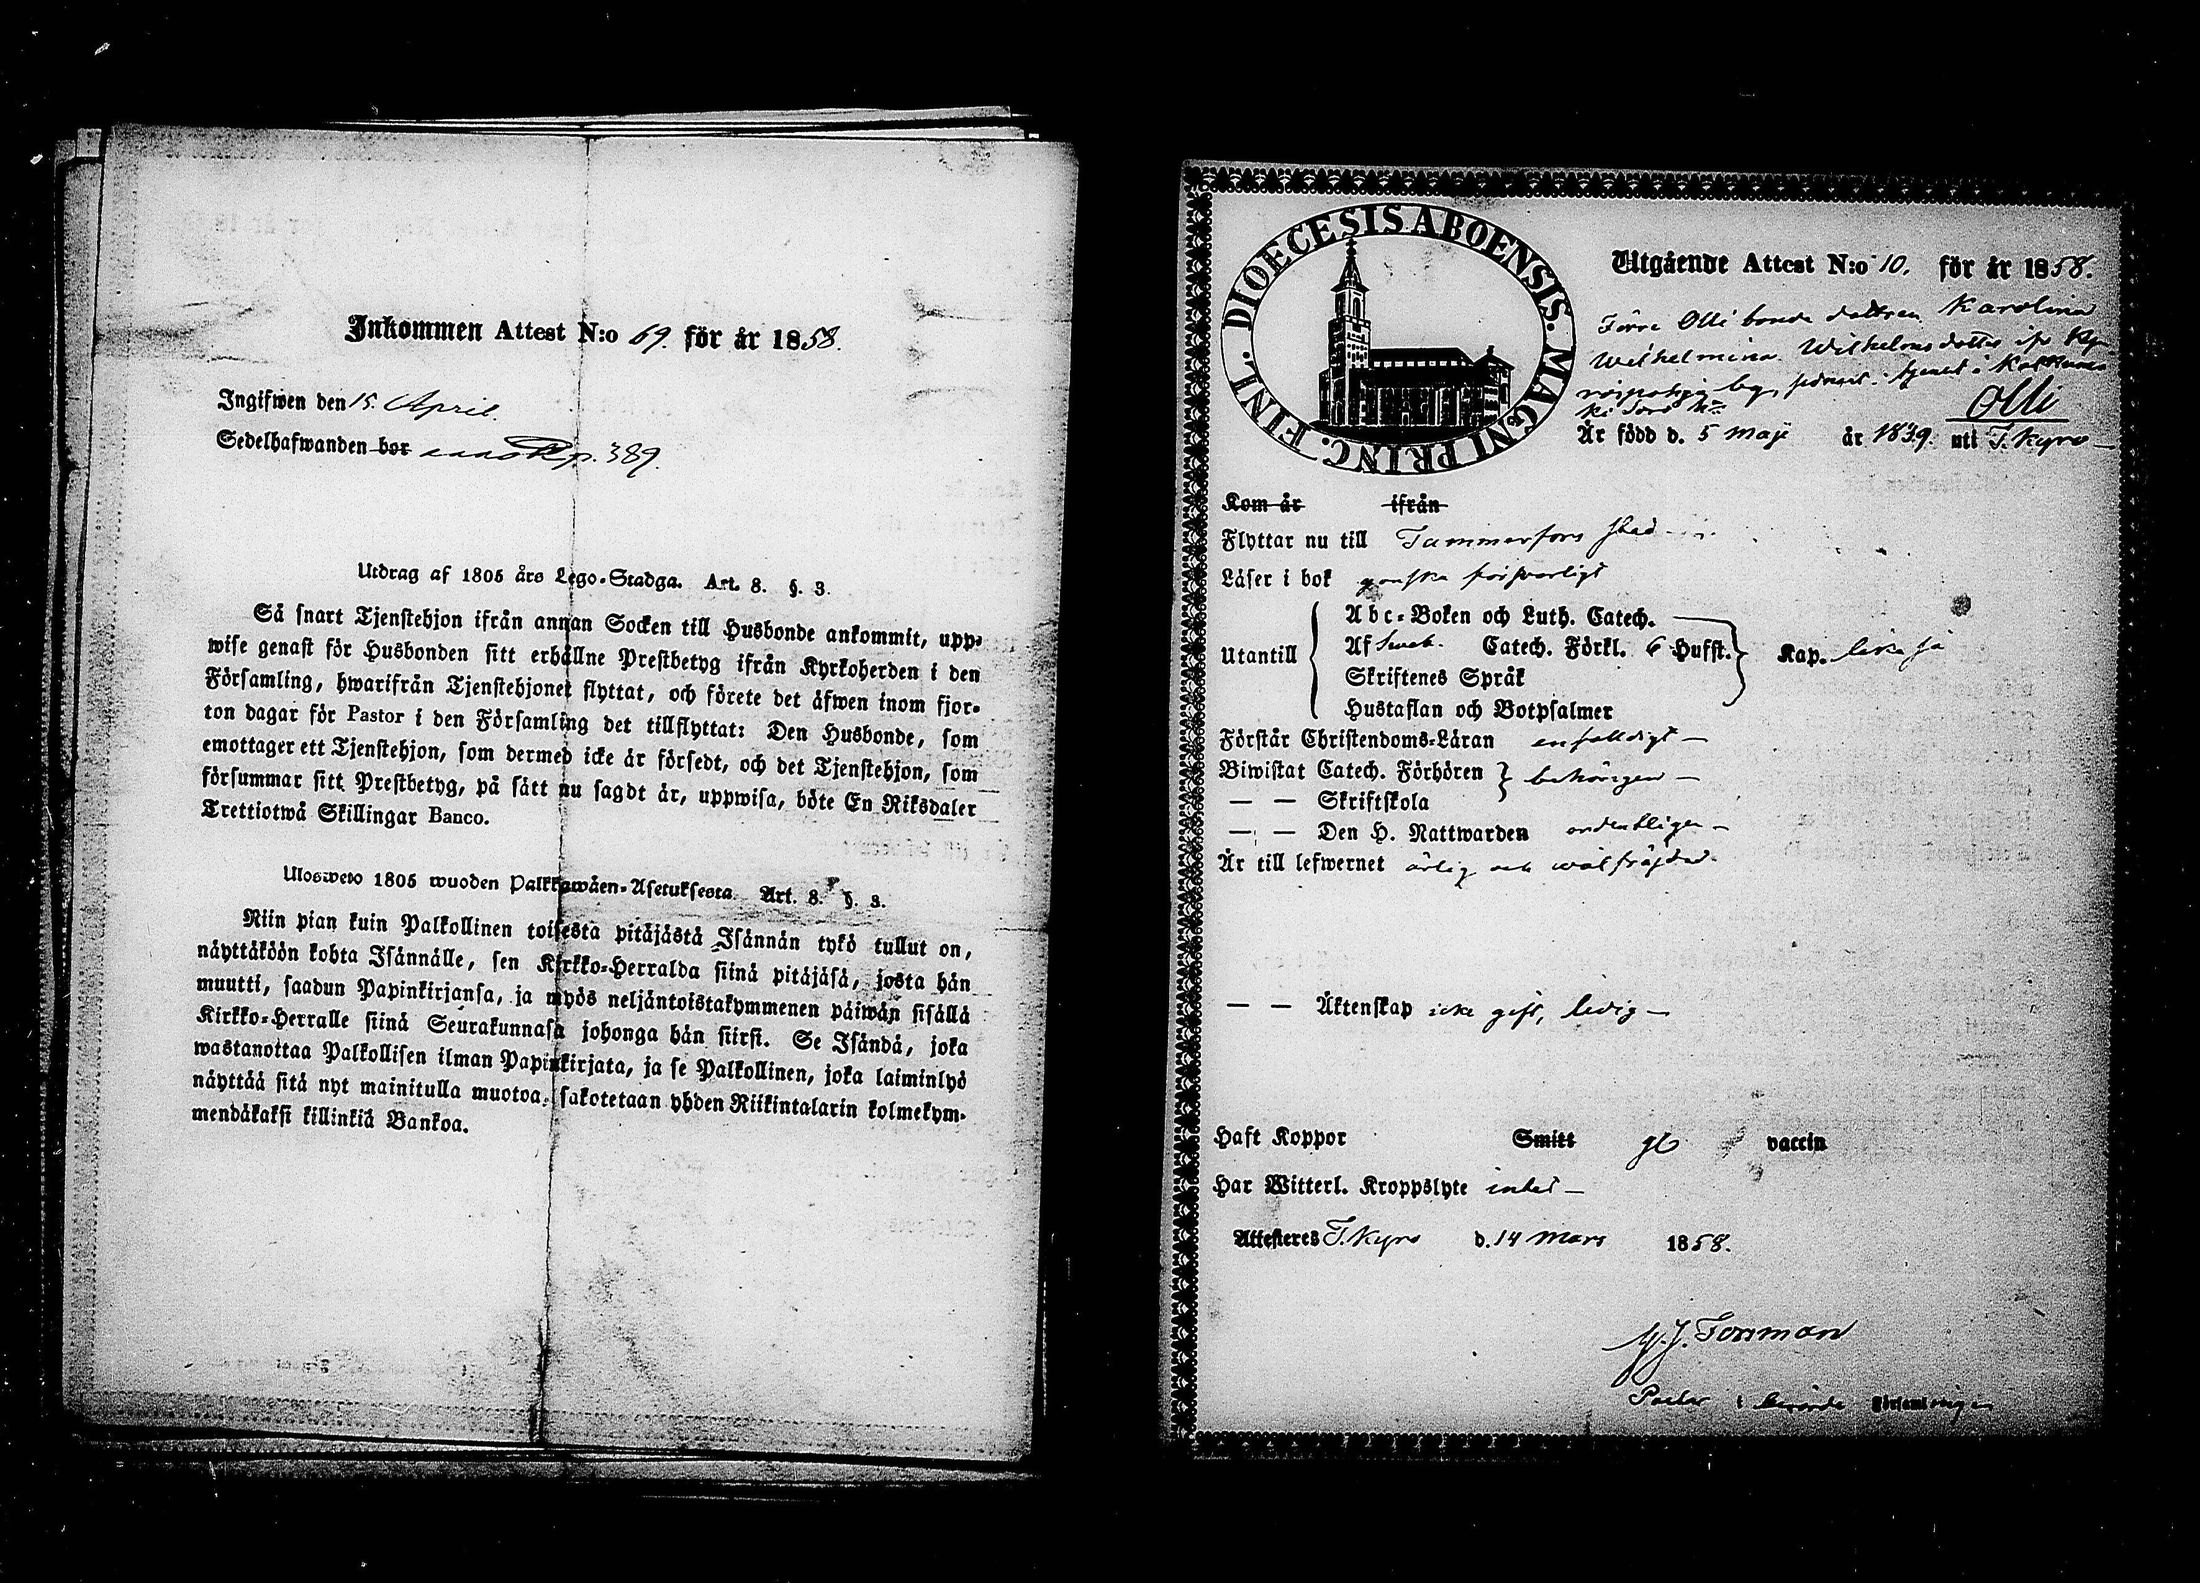 Inkommen Attest N:o 69 för år 1858.
Ingifwen den 15. April.
Sedelhafwanden bor p. 389.
Utdrag af 1805 års Lego-Stadga. Art. 8. §. 3.
Så snart Tjenstehjon ifrån annan Socken till Husbonde ankommit, upp-
wise genast för Husbonden sitt erhållne Prestbetyg ifrån Kyrkoherden i den
Församling, hwarifrån Tjenstehjonet flyttat, och förete det äfwen inom fjor-
ton dagar för Pastor i den Församling det tillflyttat: Den Husbonde, som
emottager ett Tjenstehjon, som dermed icke är försedt, och det Tjenstehjon, som
försummar sitt Prestbetyg, på sätt nu sagdt är, uppwisa, böte En Riksdaler
Trettiotwå Skillingar Banco.
Ulosweto 1805 wuoden Palkkawäen-Asetuksesta Art. 8. §. 3.
Niin pian kuin Palkollinen toisesta pitäjästä Isännän tykö tullut on,
näyttäköön kohta Isännälle, sen Kirkko-Herralda siinä pitäjäsä, josta hän
muutti, saadun Papinkirjansa, ja myös neljäntoistakymmenen päiwän sisällä
Kirkko-Herralle siinä Seurakunnasa johonga hän siirsi. Se Isändä, joka
wastanottaa Palkollisen ilman Papinkirjata, ja se Palkollinen, joka laiminlyö
näyttää sitä nyt mainitulla muotoa, sakotetaan yhden Riikintalarin kolmekym-
mendäkaksi killinkiä Bankoa.
DIOECESIS ABOENSIS. MAGNI PRINC. FINL.
Utgående Attest N:o 10. för år 1858.
Förre Olli bonde dottren Karolina
Wilhelmina Wilhelmsdotter ifr Ky-
by, tjenst i
Olli
Är född d. 5 Maji år 1839. uti T. Kyro
Kom år ifrån
Flyttar nu till Tammerfors stad
Läser i bok ganska försvarligt
Utantill
Abc-Boken och Luth. Catech.
Af Sweb. Catech. Förkl. 6 Hufst. Kap. lika så
Skriftenes Språk
Hustaflan och Botpsalmer
Förstår Christendoms-Läran enfaldigt
Biwistat Catech. Förhören behörigen
— — Skriftskola
— — Den H. Nattwarden ordentligen
Är till lefwernet ärlig och wälfräjdad.
— — Äktenskap icke gift, ledig
Haft Koppor Smitt vaccin
Har Witterl. Kroppslyte intet
Attesteres T. Kyro d. 14 Mars 1858.
Forsman
Pastor i berörde Församlingen